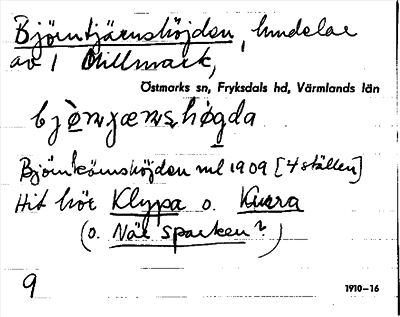 Björntjärnshöjden, hundelar
av 1 Millmark,
Östmarks sn, Fryksdals hd, Värmlands län
Björnkärnshöjden ml 1909 [4 ställen]
Hit hör Klypa o. Kvarra
(o. När sparken?)
9
1910-16